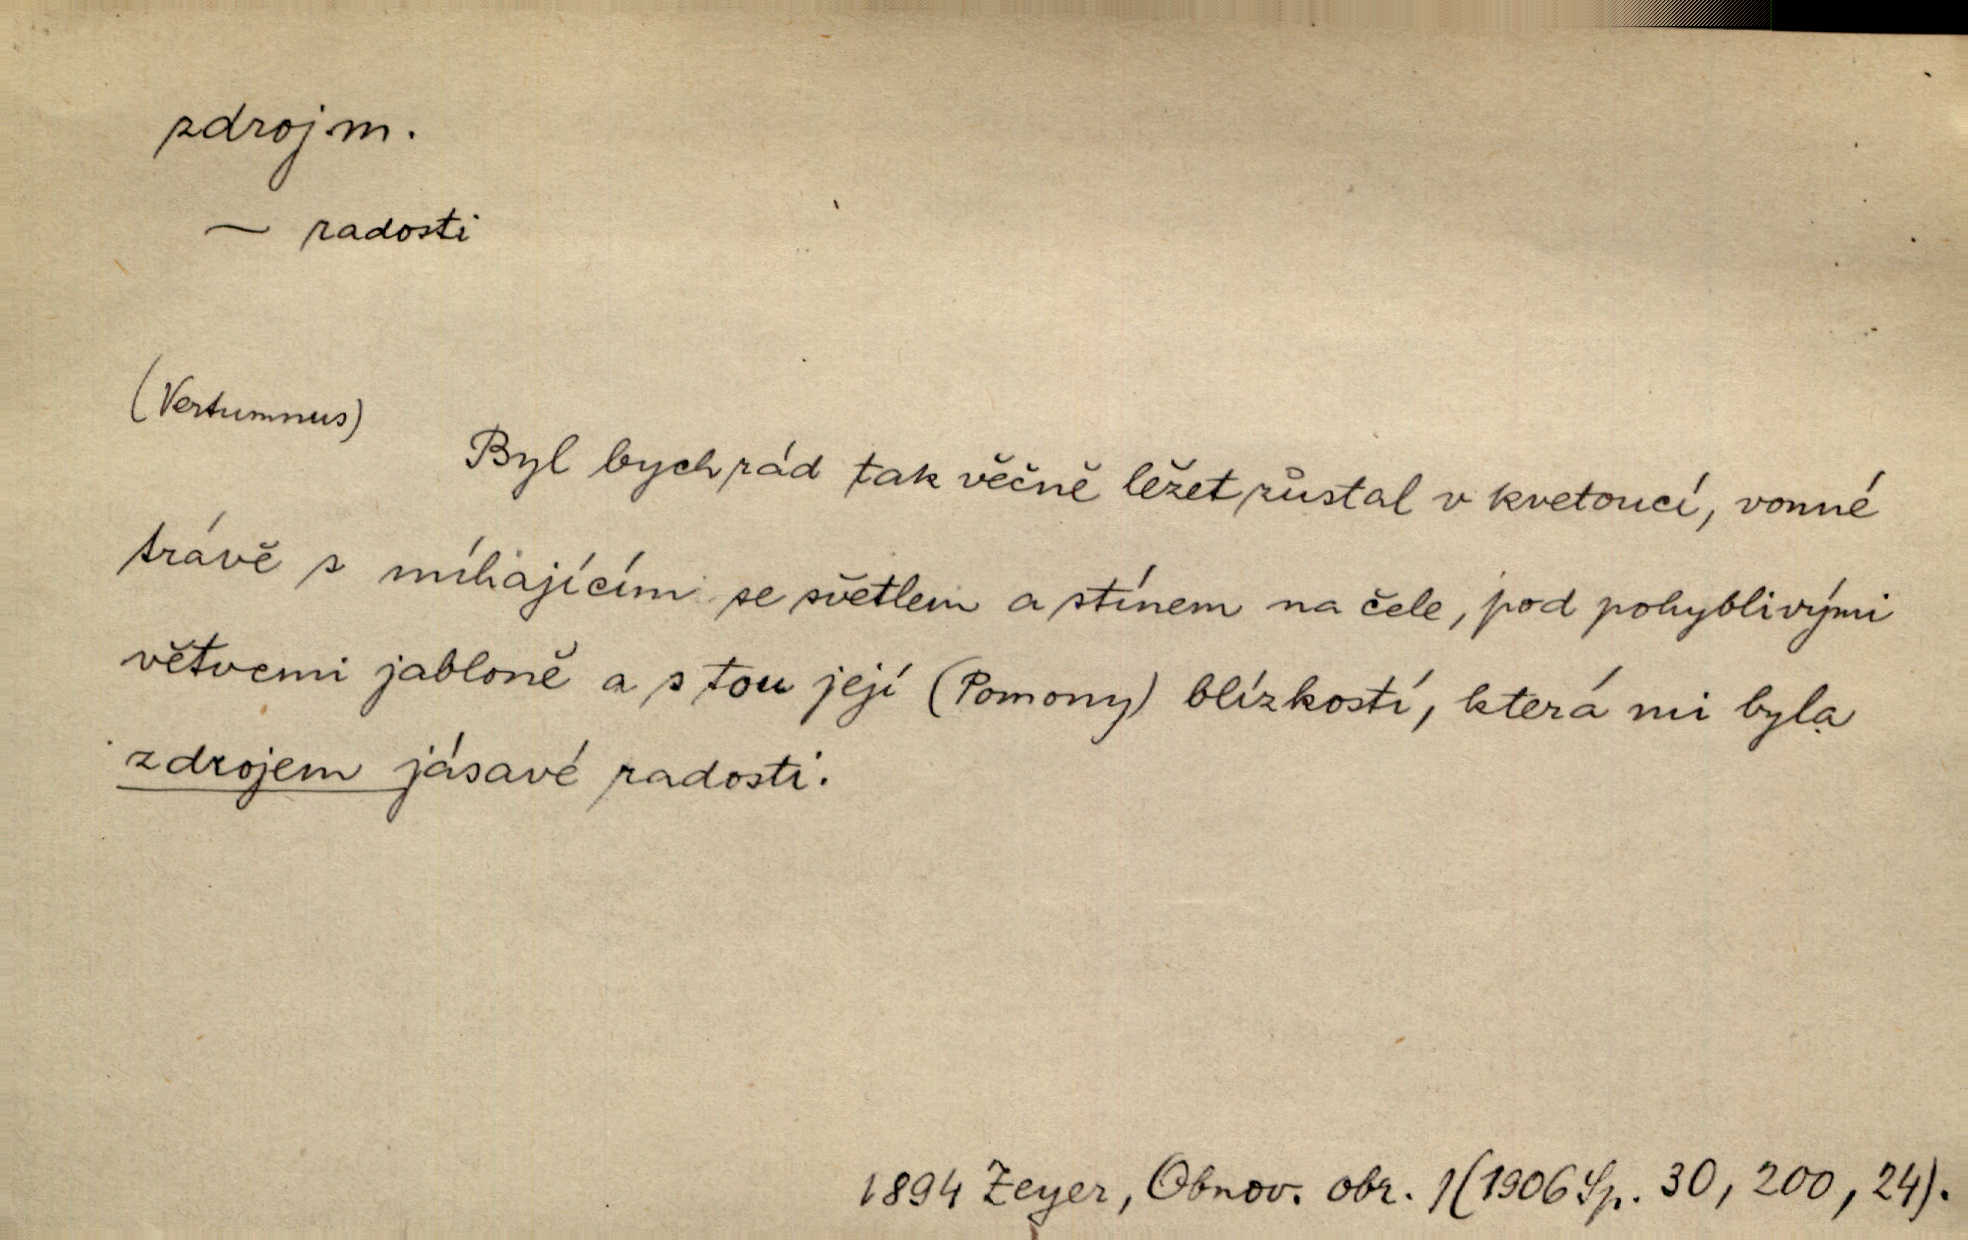 zdroj m.
~ radosti
(Vertumnus)
Byl bych rád tak věčně ležet zůstal v kvetoucí, vonné
trávě s míhajícím se světlem a stínem na čele, pod pohyblivými
větvemi jabloně a s tou její (Pomony) blízkostí, která mi byla
zdrojem jásavé radosti.
1894 Zeyer, Obnov. obr. 1(1906 Sp. 30, 200, 24).